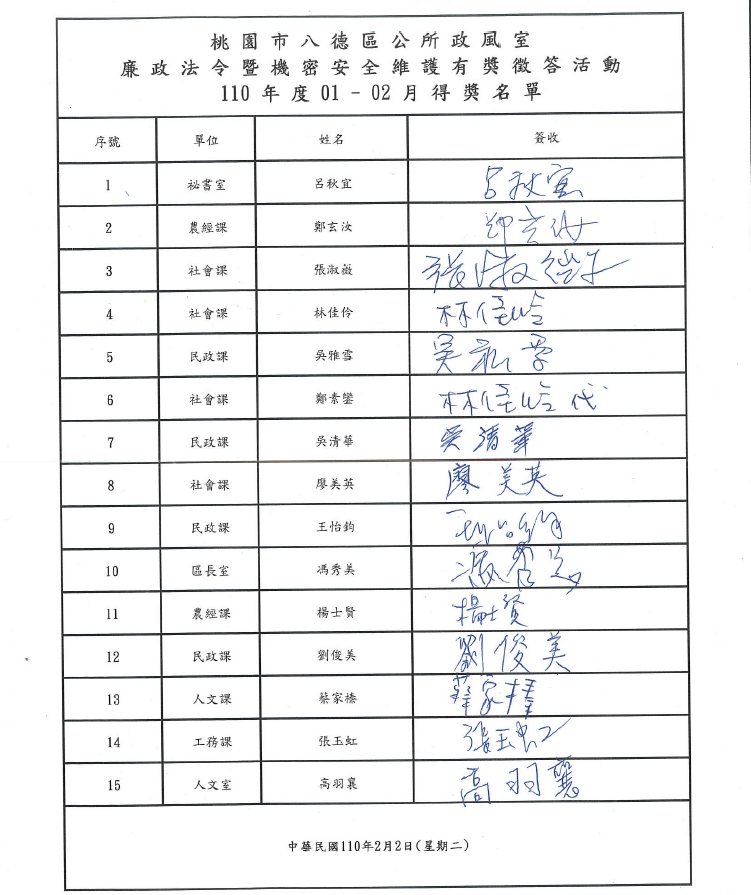 桃園市八德區公所政風室
廉政法令暨機密安全維護有獎徵答活動
110年度01-02月得獎名單
序號 單位 姓名 簽收
1 祕書室 呂秋宜 呂秋宜
2 農經課 鄭玄汝 鄭玄汝
3 社會課 張淑薇 張淑
4 社會課 林佳伶 林佳伶
5 民政課 吳雅雪 吳雅雪
6 社會課 鄭素鑾 林佳伶代
7 民政課 吳清華 吳清華
8 社會課 廖美英 廖美英
9 民政課 王怡鈞 王怡鈞
10 區長室 馮秀美 馮秀美
11 農經課 楊士賢 楊士賢
12 民政課 劉俊美 劉俊美
13 人文課 蔡家榛 蔡家榛
14 工務課 張玉虹 張玉虹
15 人文室 高羽襄 高羽襄
中華民國110年2月2日(星期二)